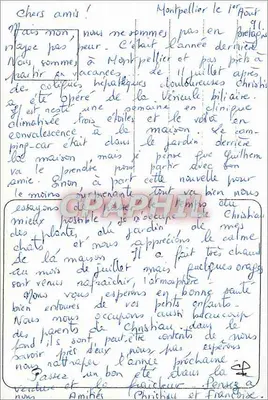 Chers amis! Montpellier le 1er Août 91
Mais non nous ne sommes pas en Bretagne
n'ayez pas peur. C'était l'année dernière
Nous sommes à Montpellier et pas prêts à
partir en vacances. de 9 juillet après
de coliques hépatiques douloureuses Christian
a été opéré de la vésicule biliaire.
Il est resté une semaine en clinique
climatisée trois étoiles et le voilà en
convalescence à la maison. Le cam-
ping-car était dans le jardin derrière
la maison mais je pense que Guilhem
va le prendre pour partir avec son
amie. Sinon à part cette nouvelle pour
le moins tout va bien nous
essayons de
mieux possible, je m'occupe de Christian
des plantes, du jardin de mes
chats et nous apprécions le calme
de la maison. Il a fait très chaud
au mois de juillet mais quelques orages
sont venus rafraîchir l'atmosphère!
Nous vous espérons en bonne santé
bien entourés de vos petits enfants.
Nous nous occupons aussi beaucoup
des parents de Christian dans le
fond ils sont contents de nous
savoir près d'eux, nous pas espérons
nous rattraper l'année prochaine.
Passez un bon été dans la
verdure et la fraîcheur. Pensez à
nous Amitiés Christian et Françoise.
CPAPHIL
CP